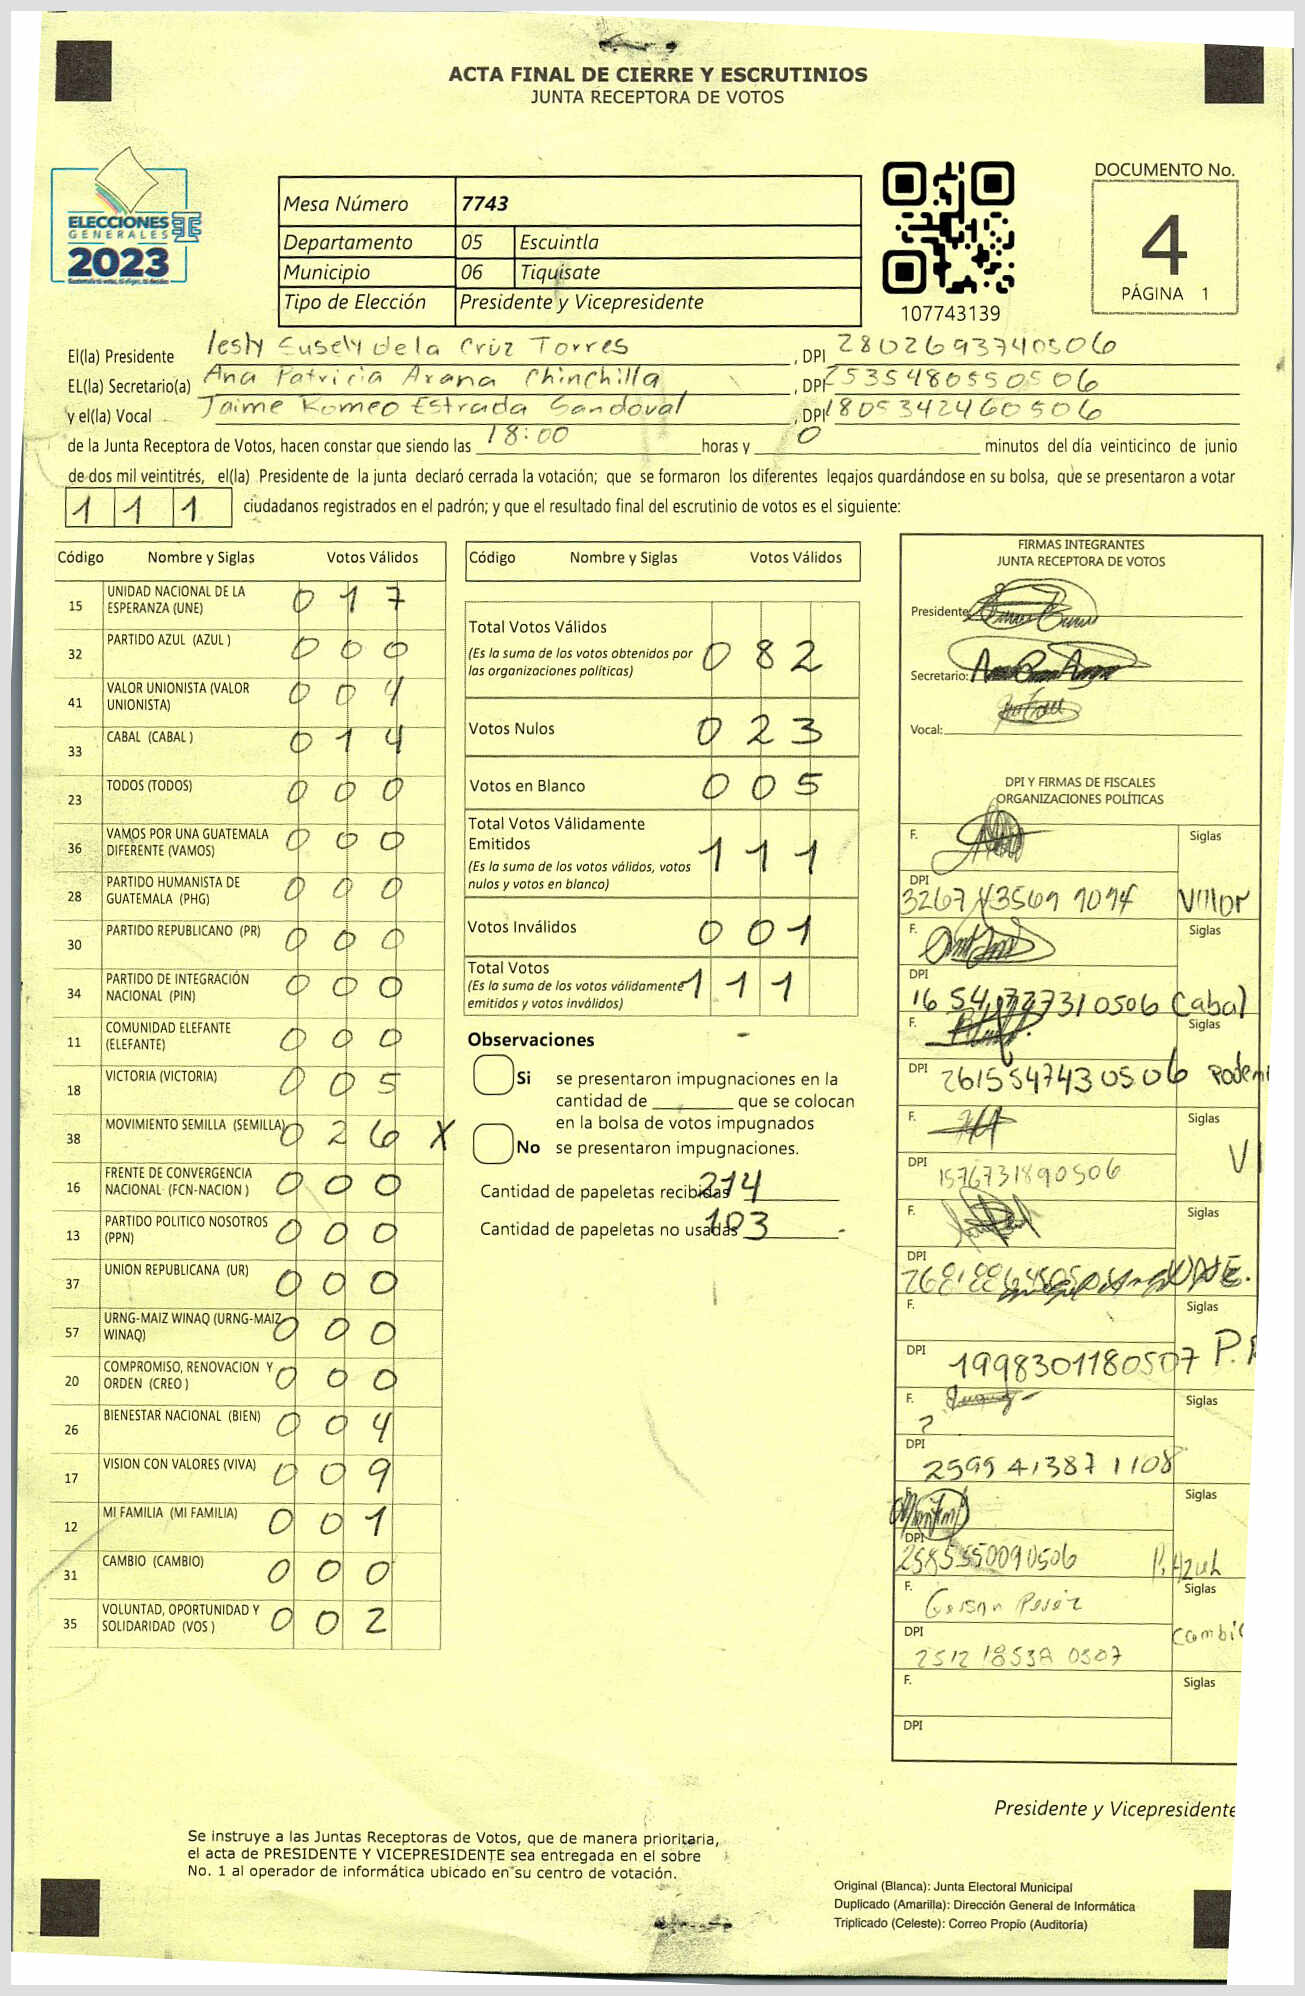 ACTA FINAL DE CIERRE Y ESCRUTINIOS
JUNTA RECEPTORA DE VOTOS
ELECCIONES
GENERALES
2023
Mesa Número 7743
Departamento 05 Escuintla
Municipio 06 Tiquisate
Tipo de Elección Presidente y Vicepresidente
107743139
DOCUMENTO No.
4
PÁGINA 1
El(la) Presidente Iesly Susely de la Cruz Torres, DPI 2802693740506
EL(la) Secretario(a) Ana Patricia Arana Chinchilla, DPI 2535480550506
y el(la) Vocal Jaime Romeo Estrada Sandoval, DPI 1805342460506
de la Junta Receptora de Votos, hacen constar que siendo las 18:00 horas y 0 minutos del día veinticinco de junio
de dos mil veintitrés, el(la) Presidente de la junta declaró cerrada la votación; que se formaron los diferentes legajos guardándose en su bolsa, que se presentaron a votar
1 1 1 ciudadanos registrados en el padrón; y que el resultado final del escrutinio de votos es el siguiente:
Código Nombre y Siglas Votos Válidos
15 UNIDAD NACIONAL DE LA
ESPERANZA (UNE) 0 1 7
32 PARTIDO AZUL (AZUL ) 0 0 0
41 VALOR UNIONISTA (VALOR
UNIONISTA) 0 0 4
33 CABAL (CABAL ) 0 1 4
23 TODOS (TODOS) 0 0 0
36 VAMOS POR UNA GUATEMALA
DIFERENTE (VAMOS) 0 0 0
28 PARTIDO HUMANISTA DE
GUATEMALA (PHG) 0 0 0
30 PARTIDO REPUBLICANO (PR) 0 0 0
34 PARTIDO DE INTEGRACIÓN
NACIONAL (PIN) 0 0 0
11 COMUNIDAD ELEFANTE
(ELEFANTE) 0 0 0
18 VICTORIA (VICTORIA) 0 0 5
38 MOVIMIENTO SEMILLA (SEMILLA) 0 2 6 X
16 FRENTE DE CONVERGENCIA
NACIONAL (FCN-NACION ) 0 0 0
13 PARTIDO POLITICO NOSOTROS
(PPN) 0 0 0
37 UNION REPUBLICANA (UR) 0 0 0
57 URNG-MAIZ WINAQ (URNG-MAIZ
WINAQ) 0 0 0
20 COMPROMISO, RENOVACION Y
ORDEN (CREO ) 0 0 0
26 BIENESTAR NACIONAL (BIEN) 0 0 4
17 VISION CON VALORES (VIVA) 0 0 9
12 MI FAMILIA (MI FAMILIA) 0 0 1
31 CAMBIO (CAMBIO) 0 0 0
35 VOLUNTAD, OPORTUNIDAD Y
SOLIDARIDAD (VOS ) 0 0 2
Código Nombre y Siglas Votos Válidos
Total Votos Válidos
(Es la suma de los votos obtenidos por
las organizaciones políticas) 0 8 2
Votos Nulos 0 2 3
Votos en Blanco 0 0 5
Total Votos Válidamente
Emitidos
(Es la suma de los votos válidos, votos
nulos y votos en blanco) 1 1 1
Votos Inválidos 0 0 1
Total Votos
(Es la suma de los votos válidamente
emitidos y votos inválidos) 1 1 1
Observaciones
Si se presentaron impugnaciones en la
cantidad de ________ que se colocan
en la bolsa de votos impugnados
No se presentaron impugnaciones.
Cantidad de papeletas recibidas 214
Cantidad de papeletas no usadas 103
FIRMAS INTEGRANTES
JUNTA RECEPTORA DE VOTOS
Presidente:
Secretario:
Vocal:
DPI Y FIRMAS DE FISCALES
ORGANIZACIONES POLÍTICAS
F. Siglas
DPI
F. Siglas
DPI
Cabal
F. Siglas
DPI 2615547430506 Podem
F. Siglas
DPI 1576731890506 VI
F. Siglas
DPI
F. Siglas
DPI 1998301180507 P.
F. Siglas
?
DPI 2599413871108
F. Siglas
DPI 2585550090506 P. Azul
F. Gerson Perez Siglas
DPI Cambi
F. Siglas
DPI
Presidente y Vicepresidente
Se instruye a las Juntas Receptoras de Votos, que de manera prioritaria,
el acta de PRESIDENTE Y VICEPRESIDENTE sea entregada en el sobre
No. 1 al operador de informática ubicado en su centro de votación.
Original (Blanca): Junta Electoral Municipal
Duplicado (Amarilla): Dirección General de Informática
Triplicado (Celeste): Correo Propio (Auditoría)